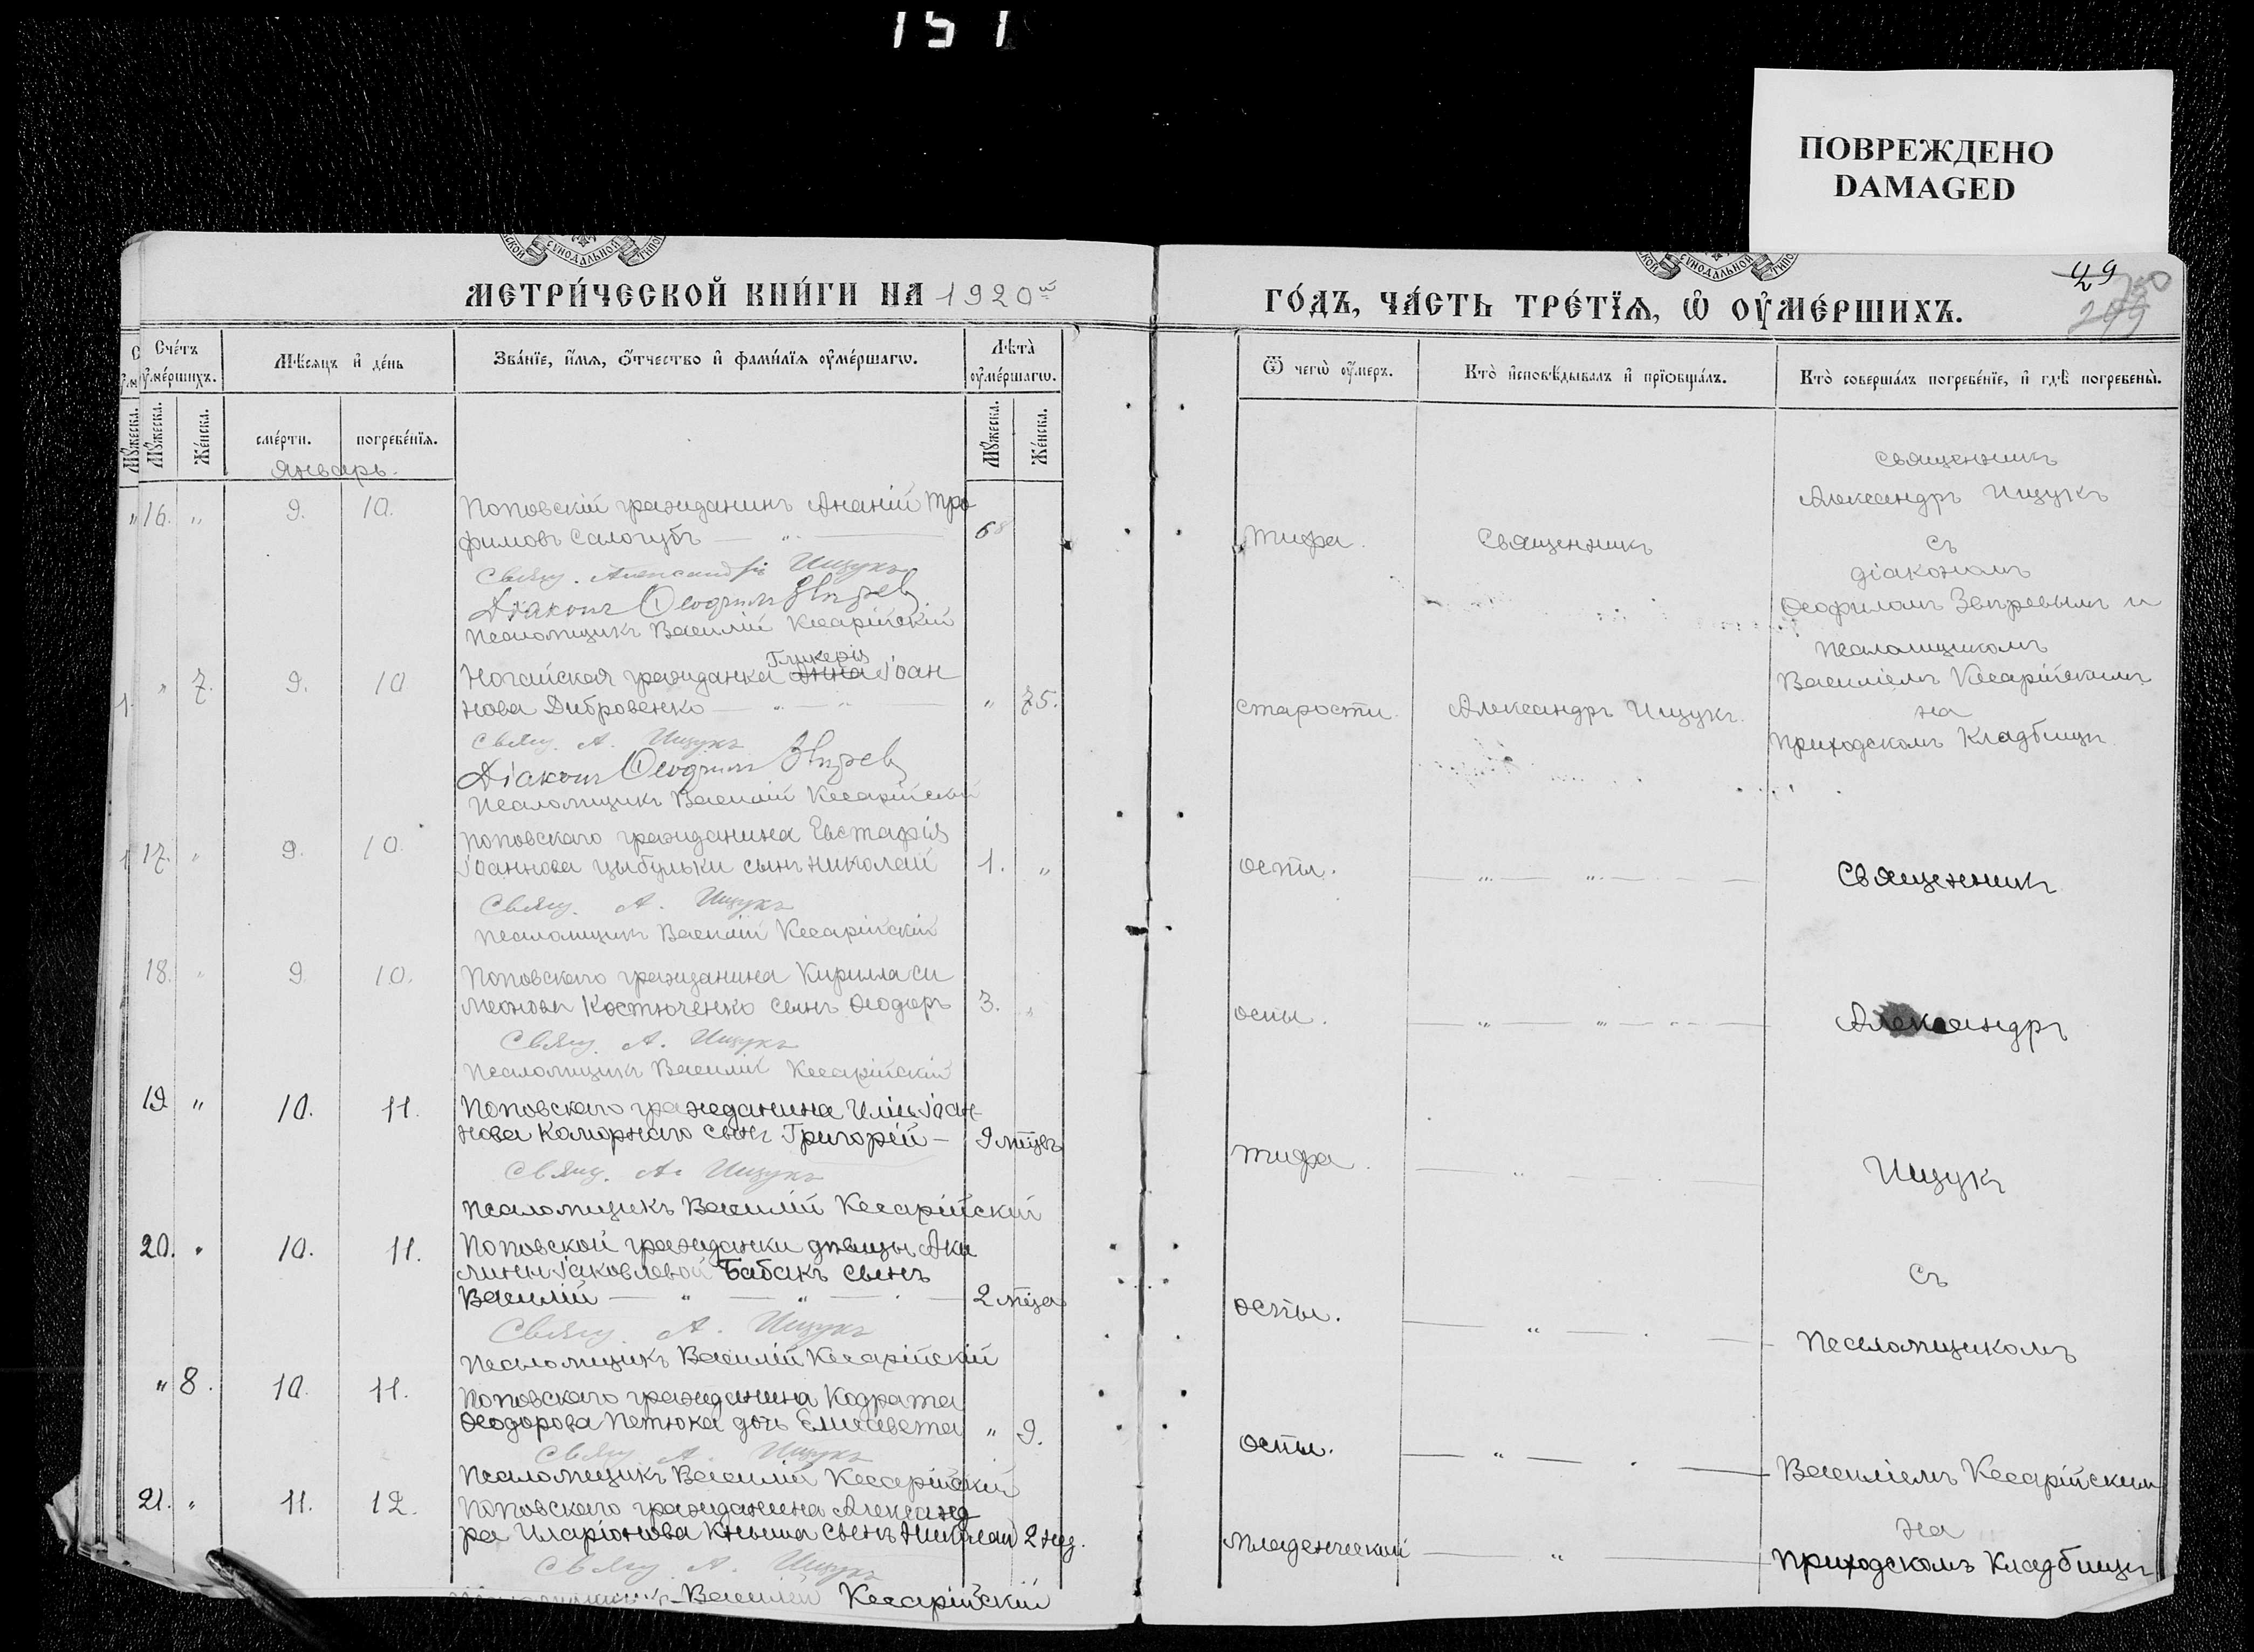 151
ПОВРЕЖДЕНО
DAMAGED
СѴНОДАЛЬНОЙ
СѴНОДАЛЬНОЙ
МЕТРИ́ЧЕСКОЙ КНИ́ГИ НА 1920й
ГО́ДЪ, ЧА́СТЬ ТРЕ́ТЇѦ, Ѡ ОУ҆МЕ́РШИХЪ.
49
Сче́тъ оу҆ме́ршихъ.
Мѣ́сяцъ и҆ де́нь
Зва́нїе, и҆́мѧ, ѻ҆́тчество и҆ фами́лїѧ оу҆ме́ршагѡ.
Лѣ́та оу҆ме́ршагѡ.
Ѿ чегѡ̀ оу҆́меръ.
Кто̀ и҆сповѣ́дывалъ и҆ прїѡбща́лъ.
Кто̀ соверша́лъ погребе́нїе, и҆ гдѣ̀ погребены̀.
Мꙋ́жеска.
Же́нска.
сме́рти.
погребе́нїѧ.
Мꙋ́жеска.
Же́нска.
Январь.
16. " 9. 10.
Поповскій гражданинъ Ананій Тро
фимовъ Салогубъ — " — 68
Свящ. Александръ Ищукъ
Діаконъ Ѳеофилъ Звѣревъ
Псаломщикъ Василій Кесарійскій
тифа.
Священникъ
Священникъ
Александръ Ищукъ
съ
діакономъ
Ѳеофиломъ Звѣревымъ и
псаломщикомъ
Василіемъ Кесарійскимъ
на
приходскомъ кладбищѣ
" 7. 9. 10
Гликерія
Ногайская гражданка Анна Іоан
нова Дибровенко — " — " — " 75.
Свящ. А. Ищукъ
Діаконъ Ѳеофилъ Звѣревъ
Псаломщикъ Василій Кесарійскій
старости.
Александръ Ищукъ.
17. " 9. 10.
Поповскаго гражданина Евстафія
Іоаннова Цыбульки сынъ Николай 1. "
Свящ. А. Ищукъ
Псаломщикъ Василій Кесарійскій
оспы.
Священникъ
18. " 9. 10.
Поповскаго гражданина Кирилла Си
меонова Костюченко сынъ Ѳеодоръ 3. "
Свящ. А. Ищукъ
Псаломщикъ Василій Кесарійскій
оспы.
Александръ
19. " 10. 11.
Поповскаго гражданина Иліи Іоан-
нова Коморнаго сынъ Григорій — 9 мцѣв
Свящ. А. Ищукъ
Псаломщикъ Василій Кесарійскій
тифа.
Ищукъ
20. " 10. 11.
Поповской гражданки дѣвицы Аки
лины Іаковлевой Бабакъ сынъ
Василій — " — " — 2 мца
Свящ. А. Ищукъ
Псаломщикъ Василій Кесарійскій
оспы.
съ
Псаломщикомъ
" 8. 10. 11.
Поповскаго гражданина Кодрата
Ѳеодорова Петюка дочь Елисавета " 9.
Свящ. А. Ищукъ
Псаломщикъ Василій Кесарійскій
оспы.
Василіемъ Кесарійским
21. " 11. 12.
Поповскаго гражданина Александ
ра Иларіонова Кныша сынъ Николай 2 нед.
Свящ. А. Ищукъ
Псаломщикъ Василій Кесарійскій
младенческой
на
приходскомъ кладбищѣ